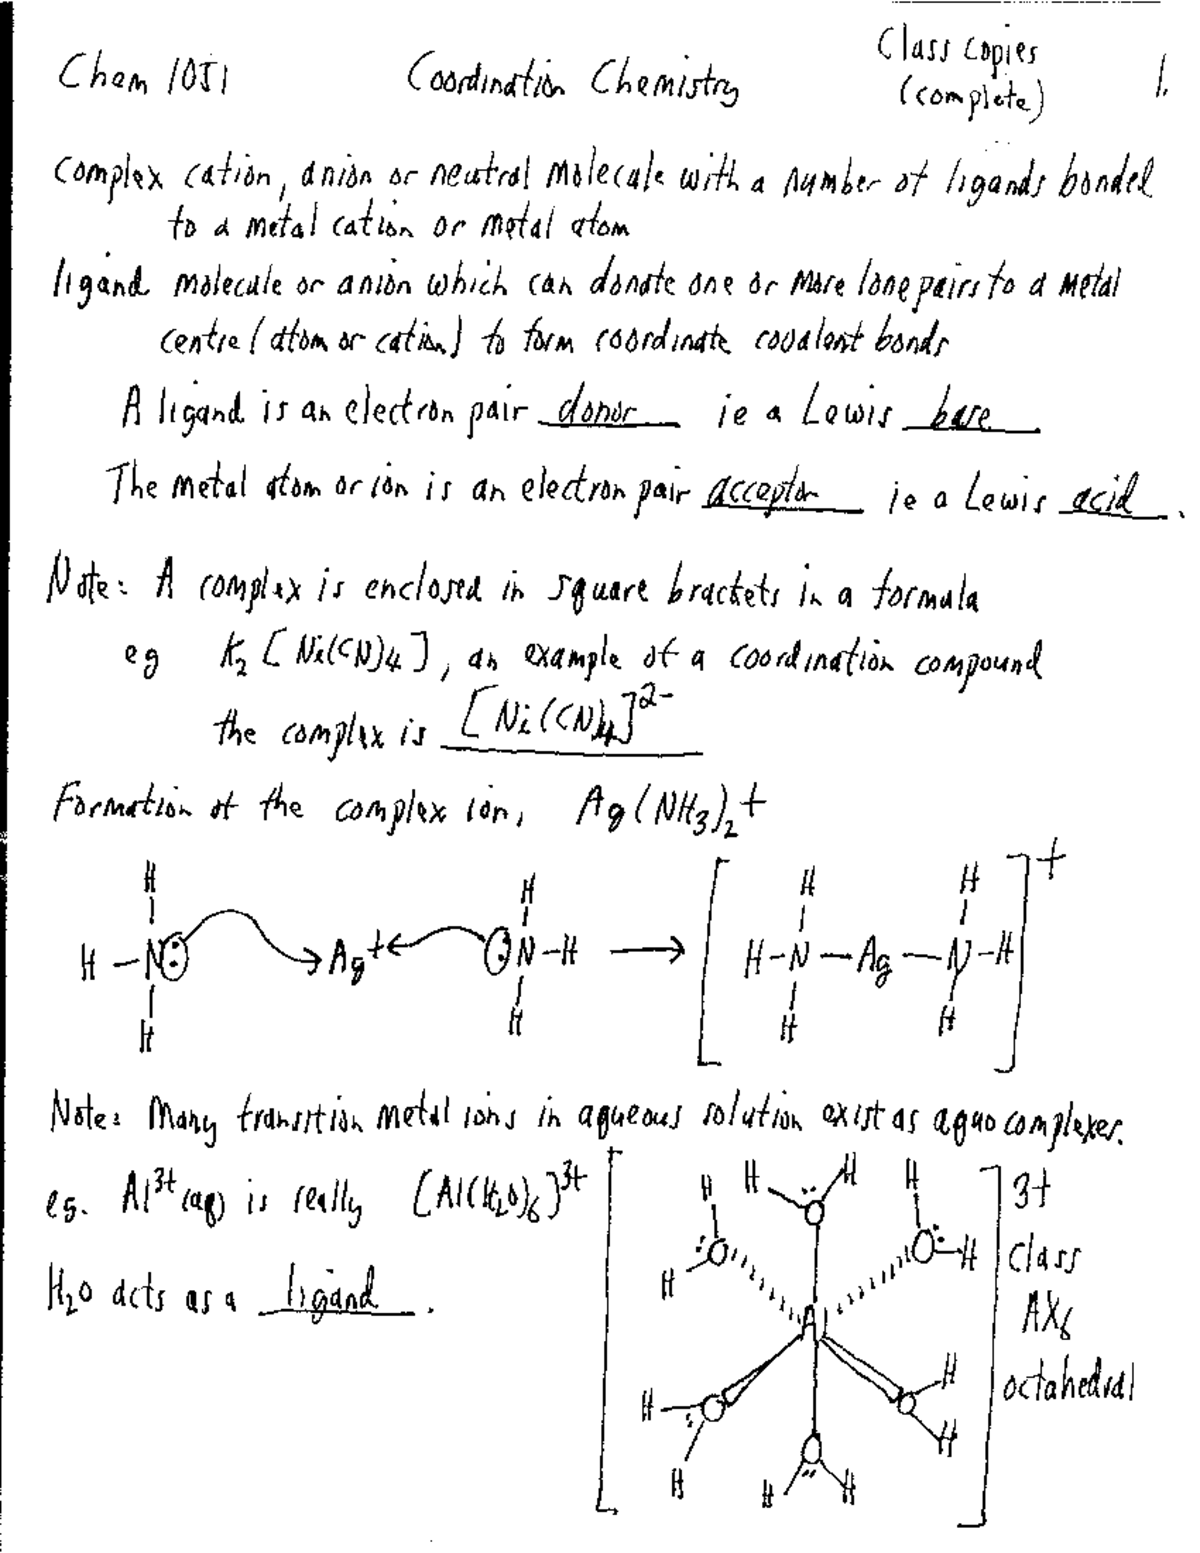 Chem 1051 Coordination Chemistry Class Copies (complete) 1.
complex cation, anion or neutral molecule with a number of ligands bonded
to a metal cation or metal atom
ligand molecule or anion which can donate one or more lone pairs to a metal
centre (atom or cation) to form coordinate covalent bonds
A ligand is an electron pair donor ie a Lewis base.
The metal atom or ion is an electron pair acceptor ie a Lewis acid.
Note: A complex is enclosed in square brackets in a formula
eg K₂[Ni(CN)₄], an example of a coordination compound
the complex is [Ni(CN)₄]²⁻
Formation of the complex ion, Ag(NH₃)₂⁺
H H H H +
H–N: Ag⁺ :N–H → [H–N–Ag–N–H]
H H H H
Note: Many transition metal ions in aqueous solution exist as aquo complexes.
eg. Al³⁺(aq) is really [Al(H₂O)₆]³⁺
H₂O acts as a ligand.
H H H H 3+
H O O O H class
Al AX₆
H O O H octahedral
H O H
H H